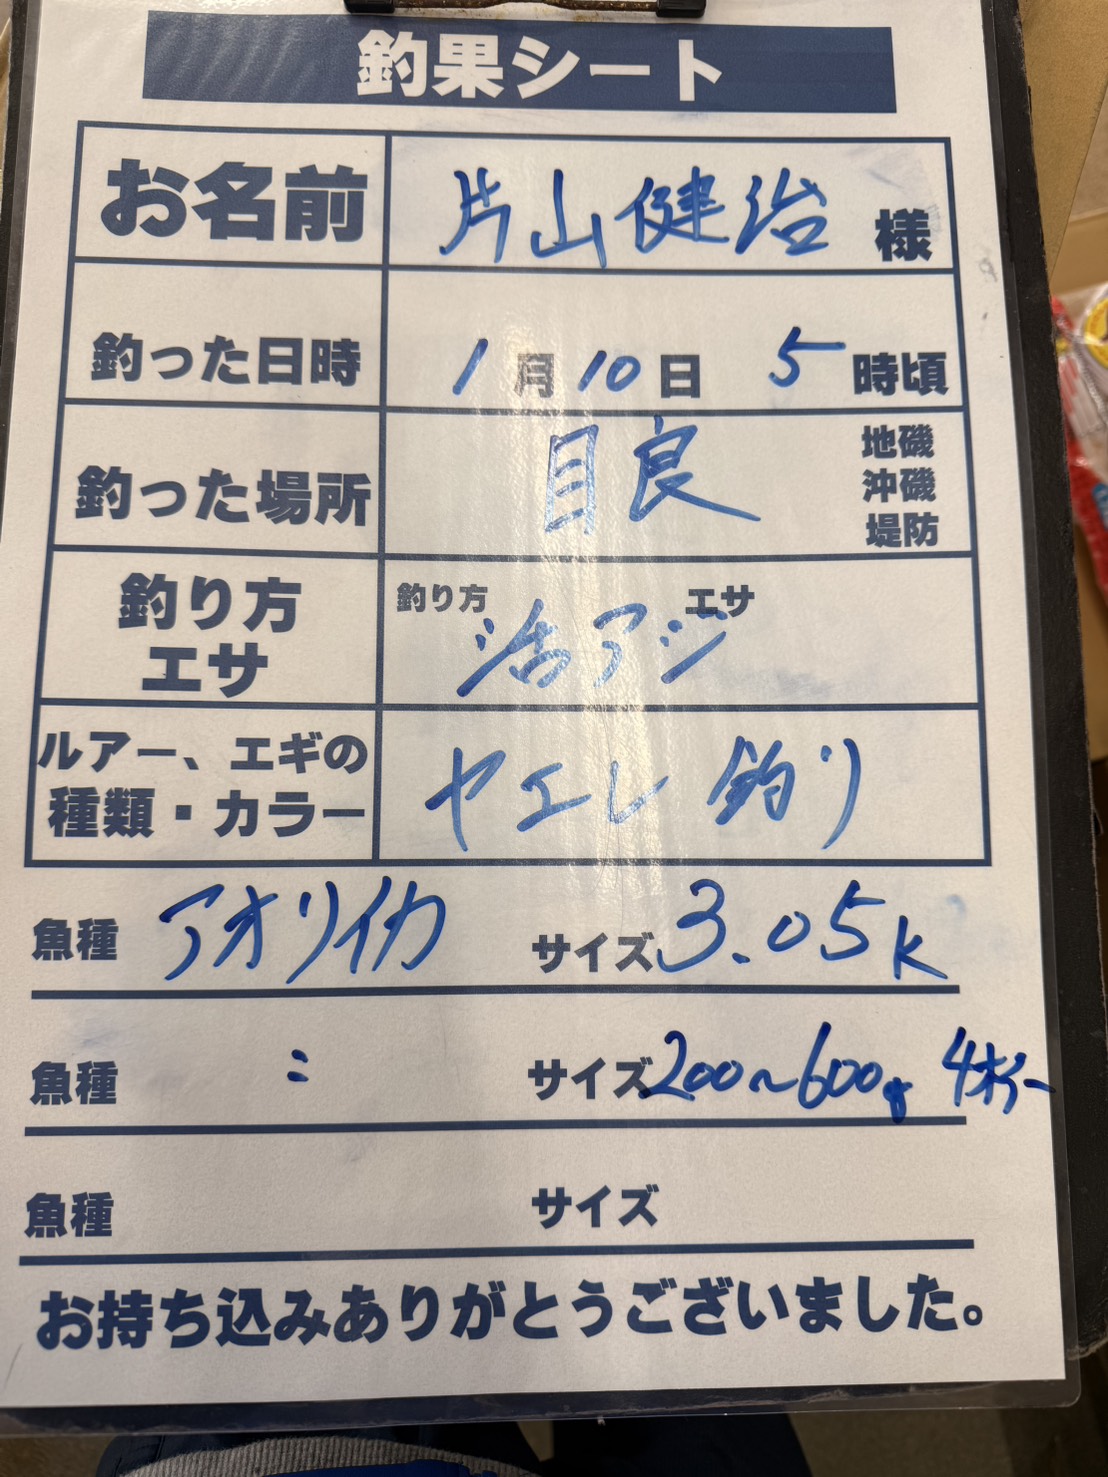 釣果シート
お名前 片山健治 様
釣った日時 1月10日 5時頃
釣った場所 目良 地磯 沖磯 堤防
釣り方 エサ 釣り方 活アジ エサ
ルアー、エギの種類・カラー ヤエレ釣り
魚種 アオリイカ サイズ 3.05k
魚種 〃 サイズ 200〜600g 4ハイ
魚種 サイズ
お持ち込みありがとうございました。